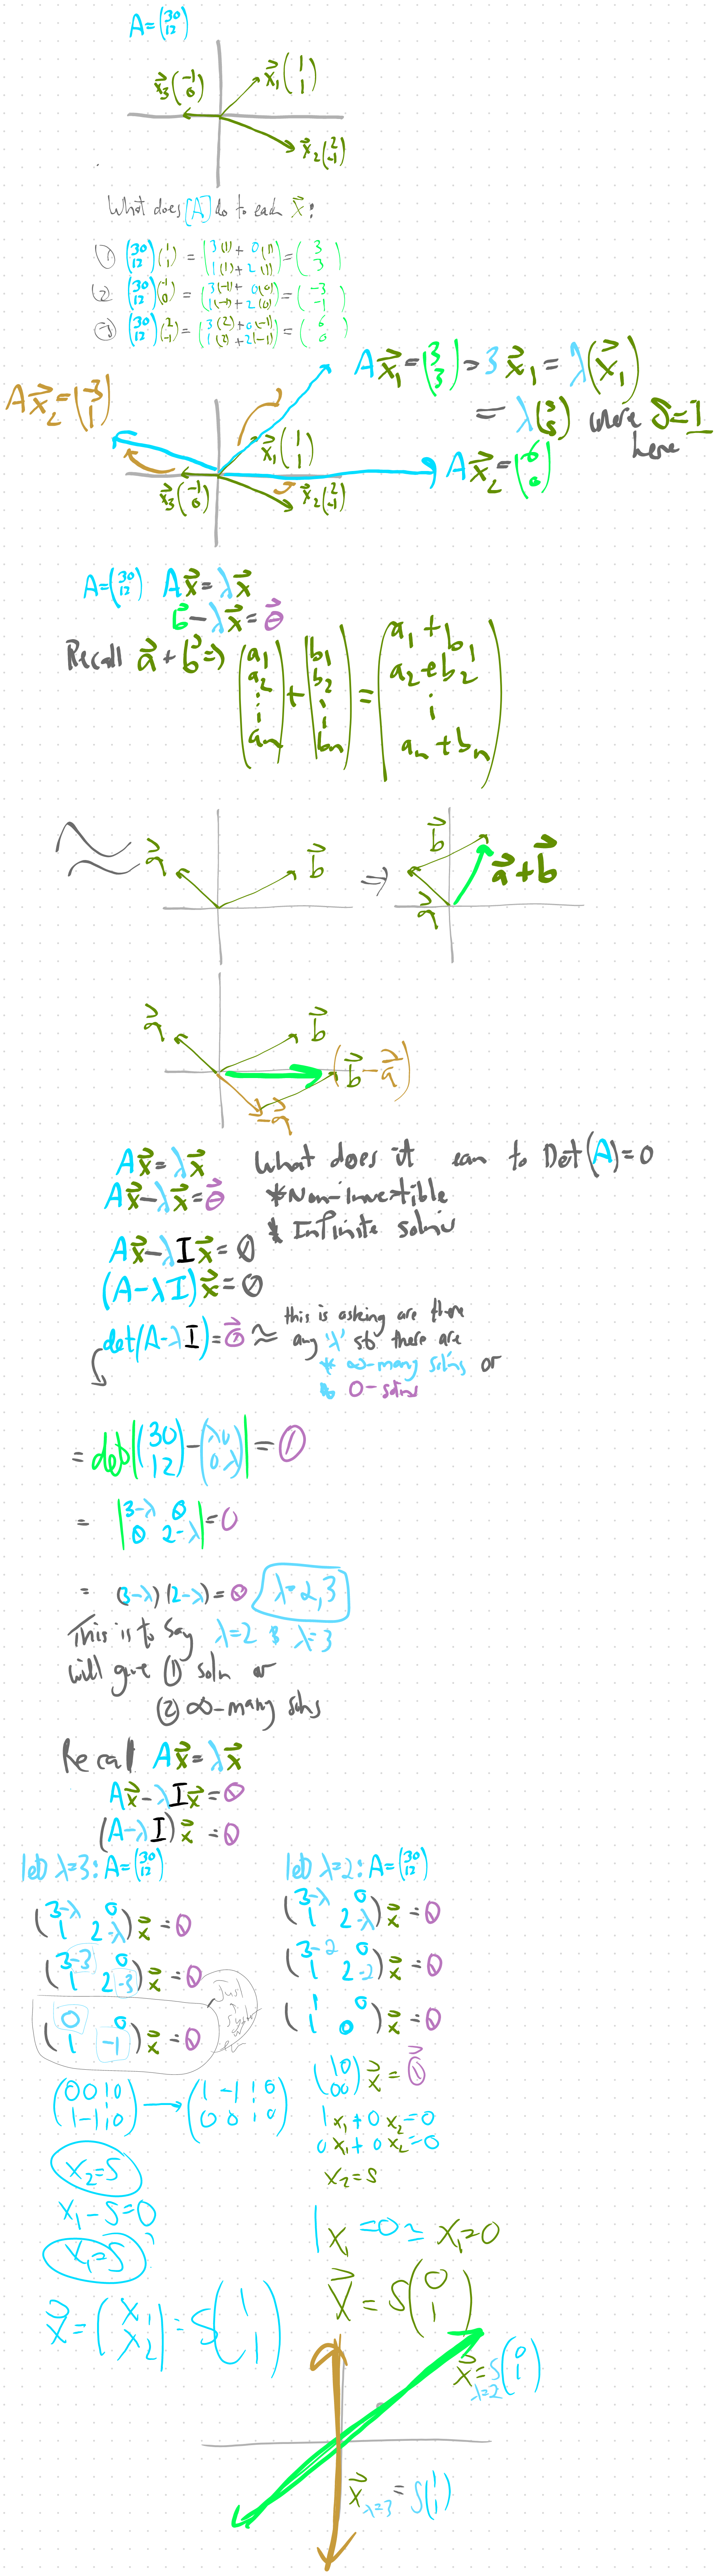 A=(3 0
1 2)
x⃗₃(-1
0)
x⃗₁(1
1)
x⃗₂(2
-1)
What does [A] do to each x⃗:
① (3 0
1 2)(1
1) = (3(1)+0(1)
1(1)+2(1)) = (3
3)
② (3 0
1 2)(-1
0) = (3(-1)+0(0)
1(-1)+2(0)) = (-3
-1)
③ (3 0
1 2)(2
-1) = (3(2)+0(-1)
1(2)+2(-1)) = (6
0)
Ax⃗₁=(3
3)=3x⃗₁=λ(x⃗₁)
=λ(s
s) where s=1
here
Ax⃗₂=(-3
1)
x⃗₁(1
1)
x⃗₃(-1
0)
x⃗₂(2
-1)
Ax⃗₂=(6
0)
A=(3 0
1 2) Ax⃗=λx⃗
b⃗-λx⃗=0⃗
Recall a⃗+b⃗⇒(a₁
a₂
⋮
aₙ)+(b₁
b₂
⋮
bₙ)=(a₁+b₁
a₂+b₂
⋮
aₙ+bₙ)
≈ a⃗ b⃗ ⇒ b⃗ a⃗ a⃗+b⃗
a⃗ b⃗
b⃗(-a⃗)
-a⃗
Ax⃗=λx⃗
Ax⃗-λx⃗=0⃗
Ax⃗-λIx⃗=0
(A-λI)x⃗=0
What does it mean to Det(A)=0
*Non-invertible
* Infinite soln's
det(A-λI)=0⃗ ≈ this is asking are there
any 'λ' st. there are
* ∞-many solns or
* 0-solns
= det|(3 0
1 2)-(λ 0
0 λ)|=0
= |3-λ 0
0 2-λ|=0
= (3-λ)(2-λ)=0 λ=2,3
This is to say λ=2 & λ=3
will give ① soln or
② ∞-many solns
Recall Ax⃗=λx⃗
Ax⃗-λIx⃗=0
(A-λI)x⃗=0
let λ=3: A=(3 0
1 2)
(3-λ 0
1 2-λ)x⃗=0
(3-3 0
1 2-3)x⃗=0
(0 0
1 -1)x⃗=0
Just
a
system
of
(0 0 | 0
1 -1 | 0) → (1 -1 | 0
0 0 | 0)
x₂=s
x₁-s=0
x₁=s
x⃗=(x₁
x₂)=s(1
1)
let λ=2: A=(3 0
1 2)
(3-λ 0
1 2-λ)x⃗=0
(3-2 0
1 2-2)x⃗=0
(1 0
1 0)x⃗=0
(1 0
0 0)x⃗=0⃗
1x₁+0x₂=0
0x₁+0x₂=0
x₂=s
1x₁=0≃x₁=0
x⃗=s(0
1)
x⃗=s(0
1)
λ=2
x⃗=s(1
1)
λ=3